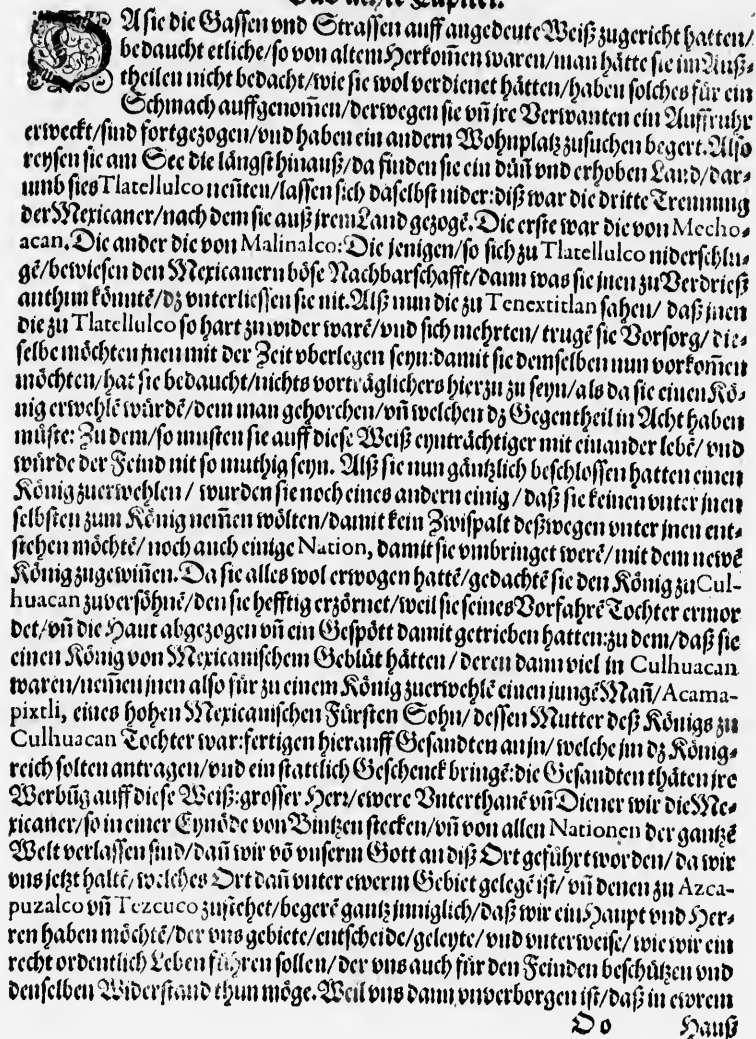 DA sie die Gassen vnd Strassen auff angedeute Weiß zugericht hatten/
bedaucht etliche/so von altem Herkom̃en waren/man hätte sie im Auß⸗
theilen nicht bedacht/wie sie wol verdienet hätten/haben solches für ein
Schmach auffgenom̃en/derwegen sie vñ jre Verwanten ein Auffruhr
erweckt/sind fortgezogen/vnd haben ein andern Wohnplatz zusuchen begert. Also
reysen sie am See die längst hinauß/da finden sie ein dün̄ vnd erhoben Land/dar⸗
umb sies Tlatellulco neñten/lassen sich daselbst nider: diß war die dritte Trennung
der Mexicaner/nach dem sie auß jrem Land gezogē. Die erste war die von Mecho⸗
acan. Die ander die von Malinalco: Die jenigen/so sich zu Tlatellulco niderschlu⸗
gē/bewiesen den Mexicanern böse Nachbarschafft/dann was sie jnen zu Verdrieß
anthun könntē/dz vnterliessen sie nit. Alß nun die zu Tenextitlan sahen/ daß jnen
die zu Tlatellulco so hart zuwider warē/vnd sich mehrten/ trugē sie Vorsorg/ die⸗
selbe möchten jnen mit der Zeit vberlegen seyn: damit sie demselben nun vorkom̃en
möchten/hat sie bedaucht/nichts vorträglichers hierzu zu seyn/als da sie einen Kö⸗
nig erwehlē würdē/dem man gehorchen/vñ welchen dz Gegentheil in Acht haben
müste: Zu dem/so musten sie auff diese Weiß eynträchtiger mit einander lebē/ vnd
würde der Feind nit so muthig seyn. Alß sie nun gäntzlich beschlossen hatten einen
König zuerwehlen / wurden sie noch eines andern einig / daß sie keinen vnter jnen
selbsten zum König nem̃en wölten/damit kein Zwispalt deßwegen vnter jnen ent⸗
stehen möchtē/ noch auch einige Nation, damit sie vmbringet werē/ mit dem newē
König zugewiñen. Da sie alles wol erwogen hattē/gedachtē sie den König zu Cul-
huacan zuversöhnē/den sie hefftig erzörnet/weil sie seines Vorfahrē Tochter ermor
det/vñ die Haut abgezogen vñ ein Gespött damit getrieben hatten: zu dem/daß sie
einen König von Mexicanischem Geblüt hätten / deren dann viel in Culhuacan
waren/nem̃en jnen also für zu einem König zuerwehlē einen jungē Mañ/ Acama-
pixtli, eines hohen Mexicanischen Fürsten Sohn/ dessen Mutter deß Königs zu
Culhuacan Tochter war: fertigen hierauff Gesandten an jn/ welche jm dz König⸗
reich solten antragen/vnd ein stattlich Geschenck bringē: die Gesandten thäten jre
Werbũg auff diese Weiß: grosser Herr/ewere Vnterthanē vñ Diener wir die Me⸗
xicaner/so in einer Eynöde von Bintzen stecken/vñ von allen Nationen der gantzē
Welt verlassen sind/dañ wir võ vnserm Gott an diß Ort geführt worden/ da wir
vns jetzt haltē/welches Ort dañ vnter ewerm Gebiet gelegē ist/ vñ denen zu Azca-
puzalco vñ Tezcuco zustehet/begerē gantz jnniglich/daß wir ein Haupt vnd Her⸗
ren haben möchtē/der vns gebiete/entscheide/geleyte/ vnd vnterweise/ wie wir ein
recht ordentlich Leben führen sollen/der vns auch für den Feinden beschützen vnd
denselben Widerstand thun möge. Weil vns dann vnverborgen ist/daß in ewrem
Oo Hauß